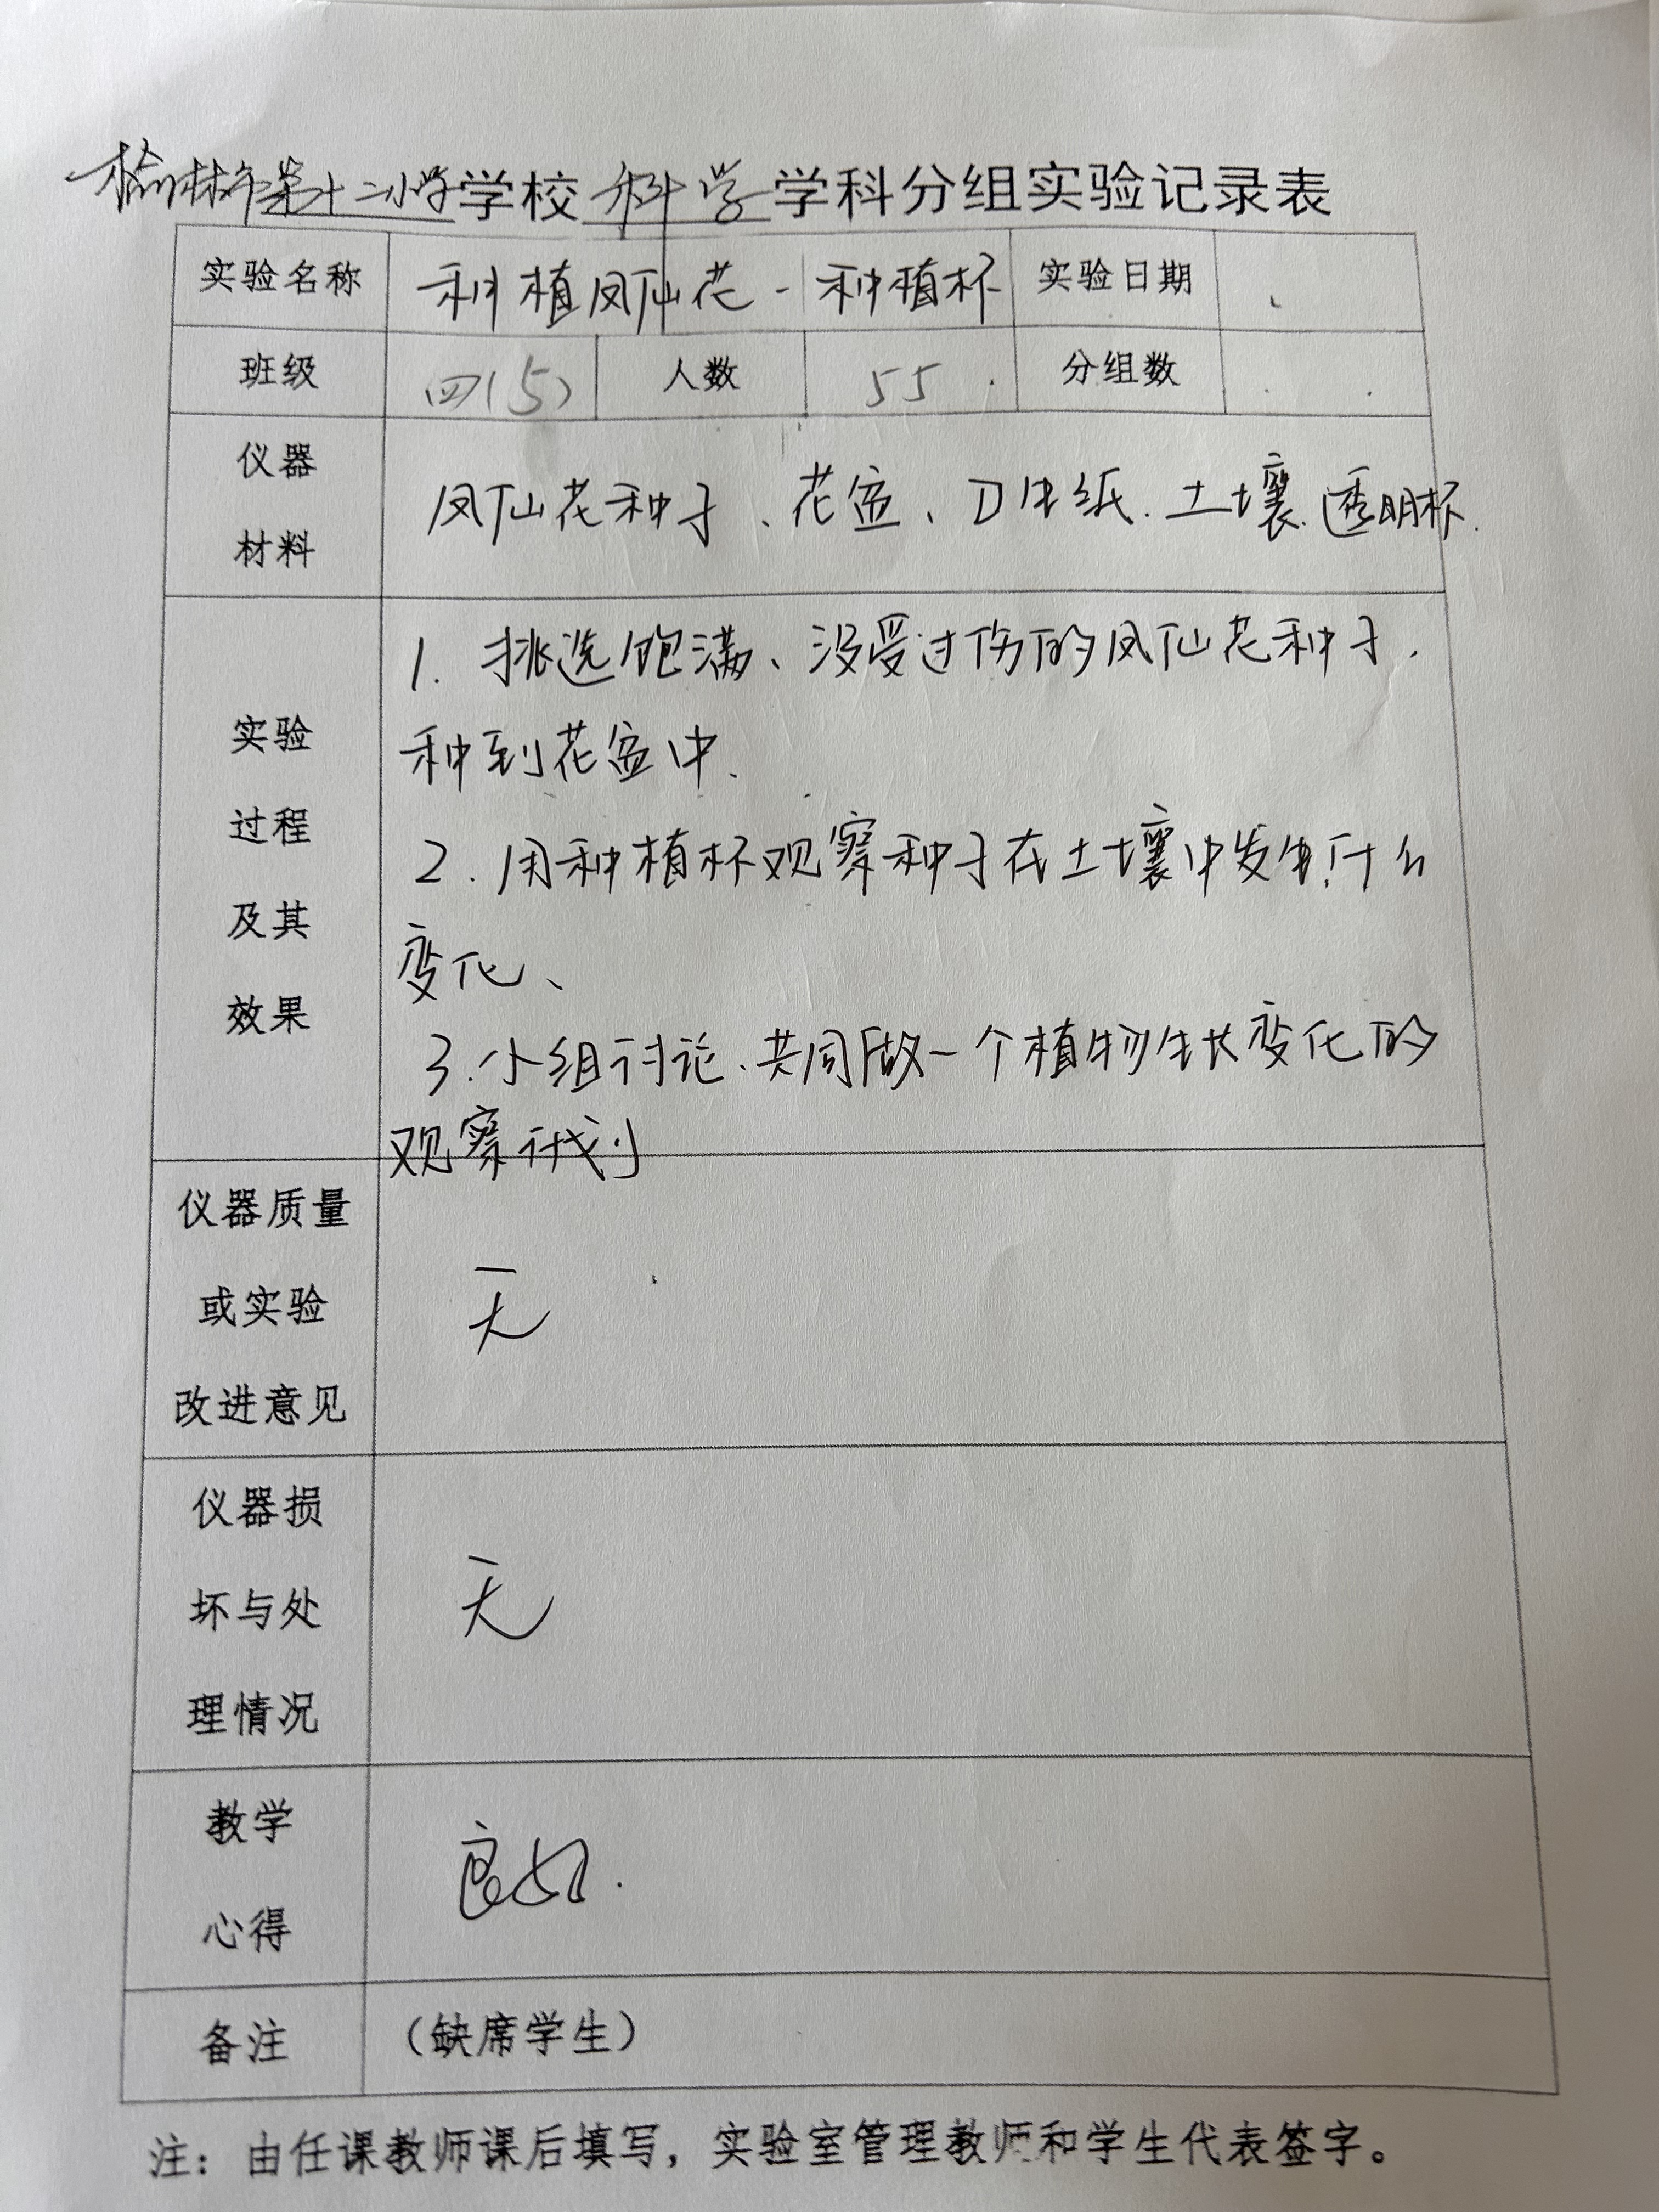 榆林市第十二小学学校 科学 学科分组实验记录表
实验名称 种植凤仙花-种植杯 实验日期
班级 四(5) 人数 55 分组数
仪器
材料
凤仙花种子、花盆、卫生纸.土壤.透明杯.
实验
过程
及其
效果
1. 挑选饱满、没受过伤的凤仙花种子,
种到花盆中.
2. 用种植杯观察种子在土壤中发生什么
变化、
3.小组讨论、共同做一个植物生长变化的
观察计划
仪器质量
或实验
改进意见
无
仪器损
坏与处
理情况
无
教学
心得
良好.
备注 (缺席学生)
注：由任课教师课后填写，实验室管理教师和学生代表签字。